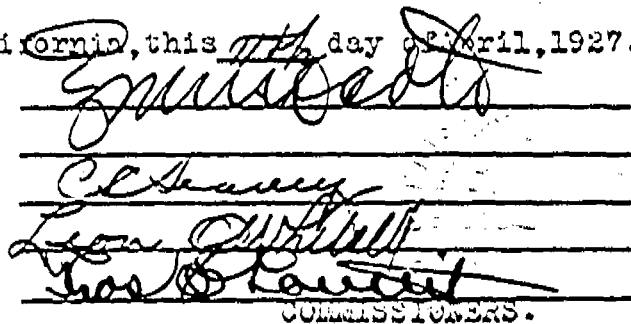 ifornia, this 11th day of April, 1927.
C C Seavey
Leon O Whitsell
Thos S Louttit
COMMISSIONERS.